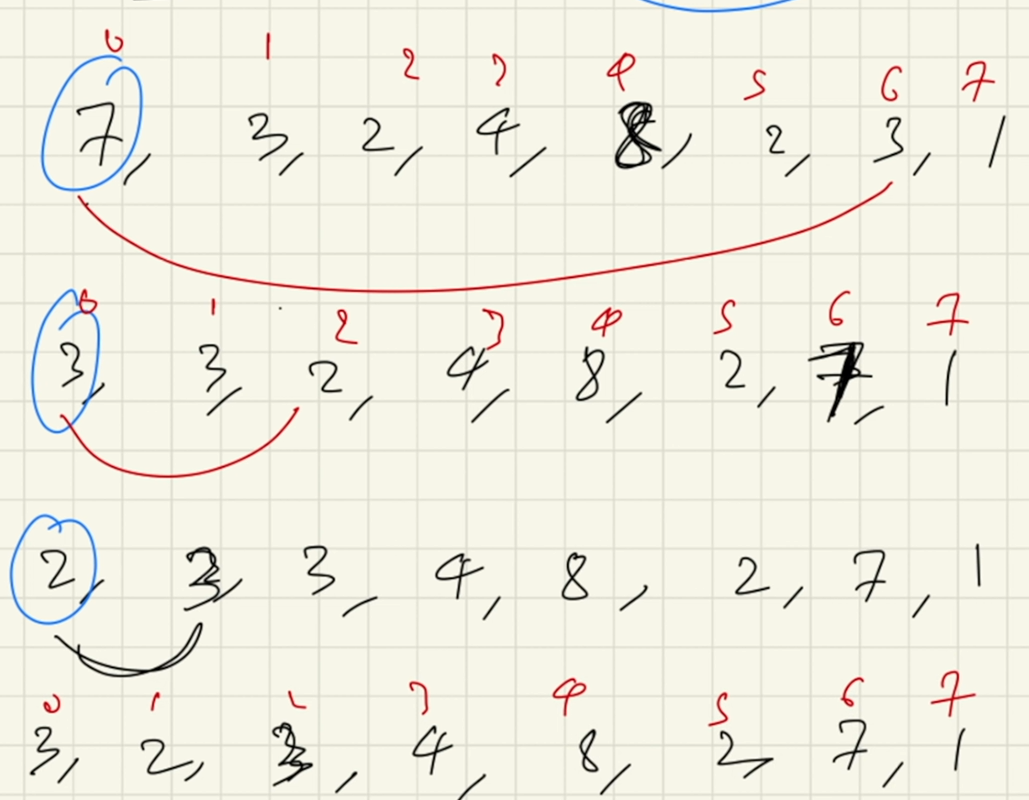 0 1 2 3 4 5 6 7
7, 3, 2, 4, 8, 2, 3, 1
0 1 2 3 4 5 6 7
3, 3, 2, 4, 8, 2, 7, 1
2, 3, 3, 4, 8, 2, 7, 1
0 1 2 3 4 5 6 7
3, 2, 3, 4, 8, 2, 7, 1